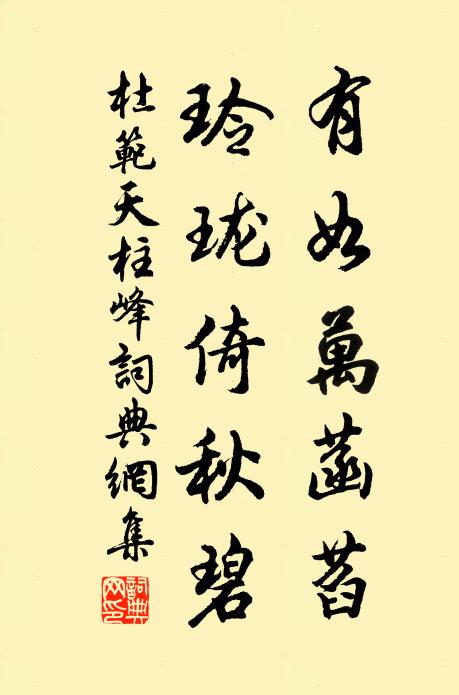 有如萬菡萏
玲珑倚秋碧
杜範天柱峰詞典網集
詞典网印